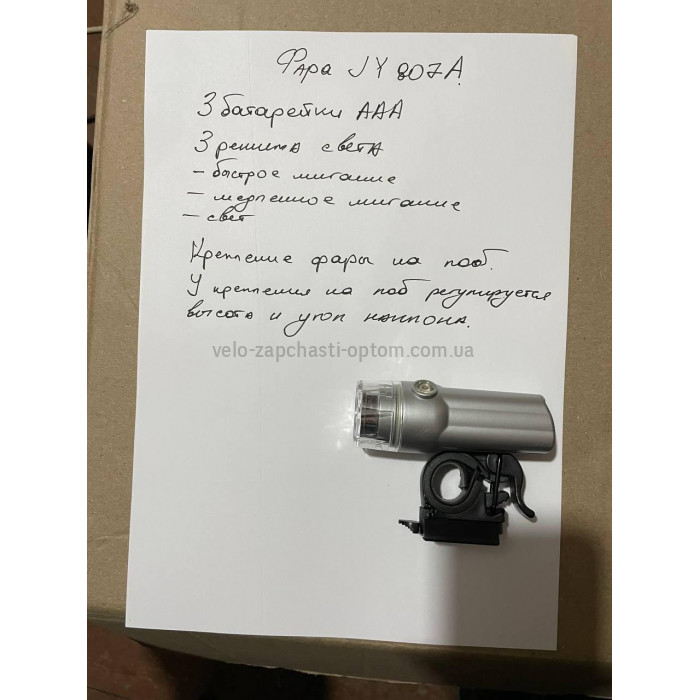 Фара JY 807A
3 батарейки ААА
3 режима света
- быстрое мигание
- медленное мигание
- свет
Крепление фары на лоб.
У крепления на лоб регулируется
высота и угол наклона.
velo-zapchasti-optom.com.ua